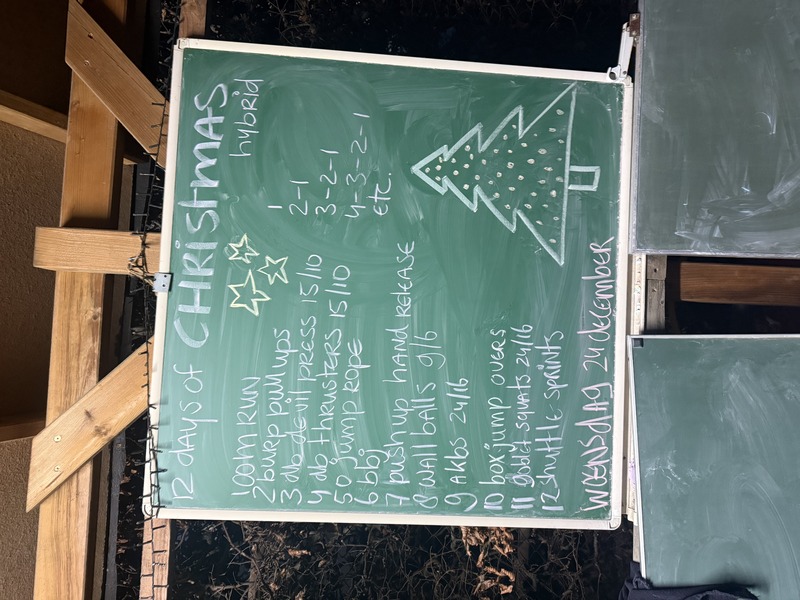 12 days of CHRISTMAS
hybrid
100m RUN
2 burp pull ups
3 db devil press 15/10
4 db thrusters 15/10
50 jump rope
6 bbj
7 push up hand RELEASE
8 wall balls 9/6
9 AKbs 24/16
10 box jump overs
11 goblet squats 24/16
12 shuttle sprints
1
2-1
3-2-1
4-3-2-1
etc.
WOENSDAG 24 december